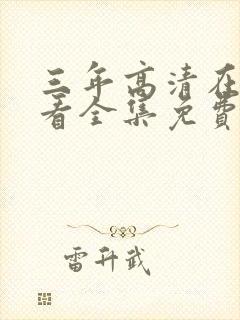 三年高清在
看全集免费
雷升武